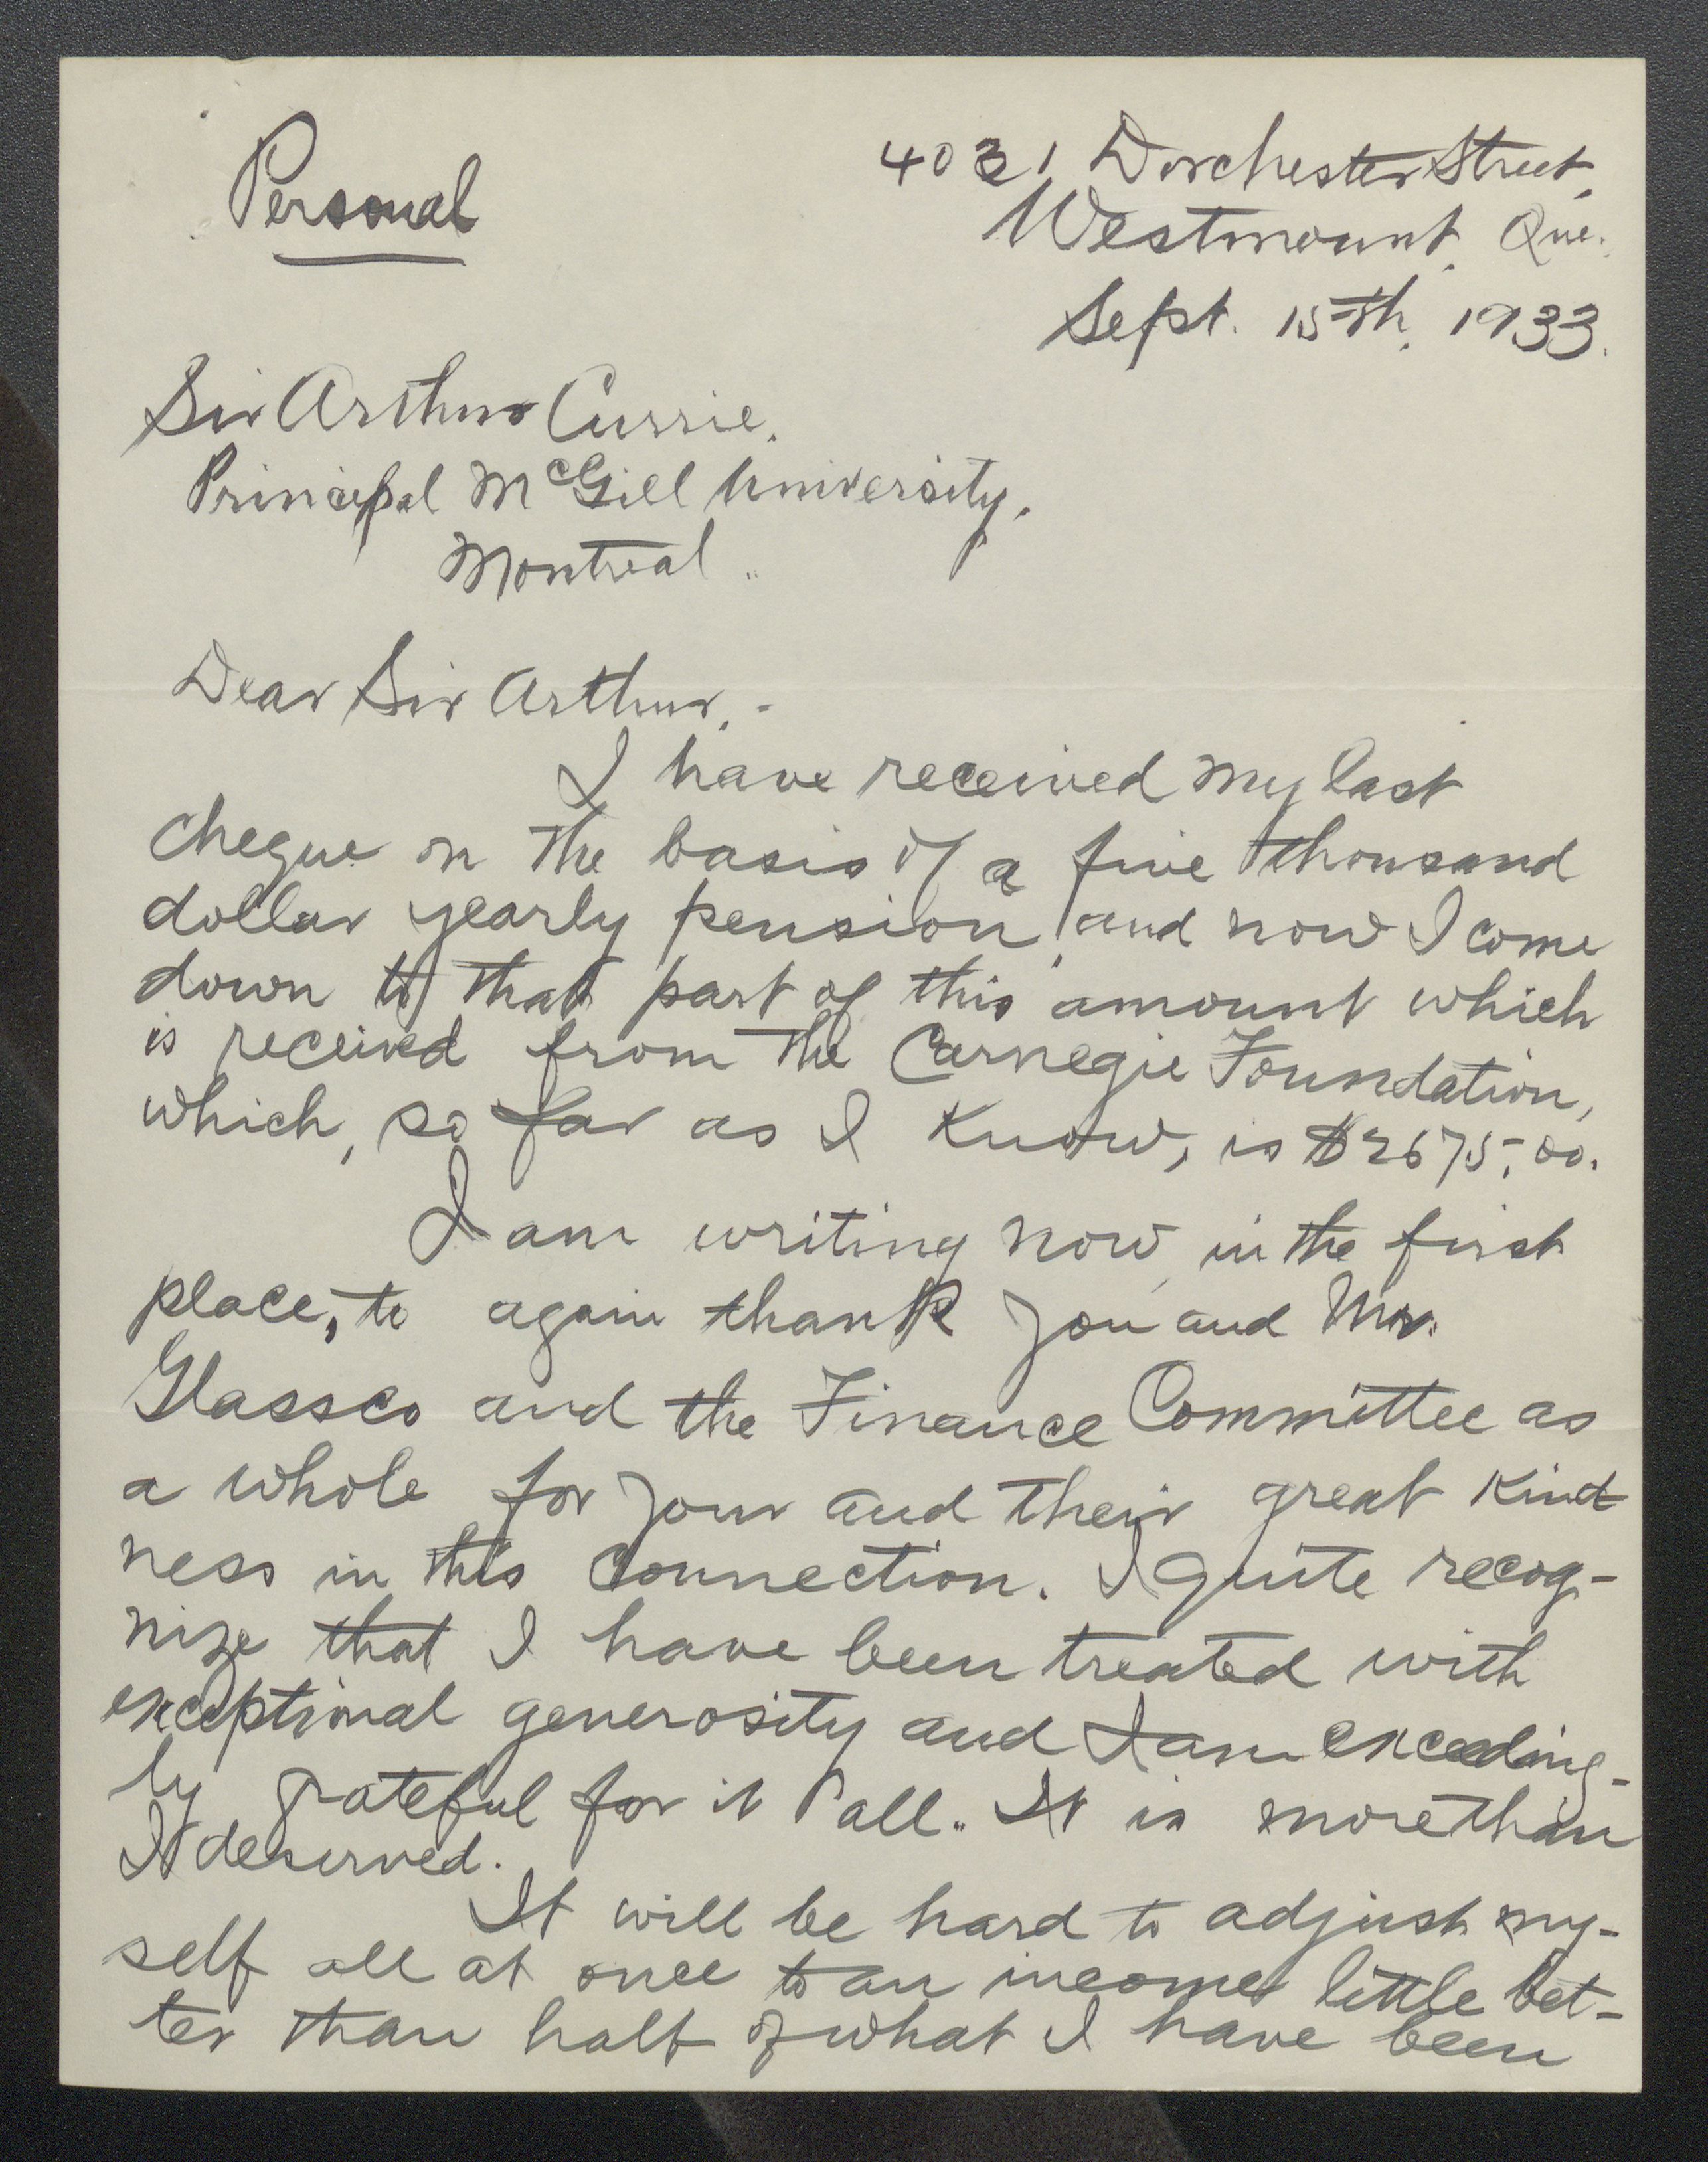 Personal
4031 Dorchester Street,
Westmount, Que.
Sept. 15th, 1933.
Sir Arthur Currie,
Principal McGill University,
Montreal.
Dear Sir Arthur,-
I have received my last
cheque on the basis of a five thousand
dollar yearly pension, and now I come
down to that part of this amount which
is received from the Carnegie Foundation,
which, so far as I know, is $2675.00.
I am writing now, in the first
place, to again thank you and Mr.
Glassco and the Finance Committee as
a whole for your and their great kind
ness in this connection. I quite recog-
nize that I have been treated with
exceptional generosity and I am exceeding-
ly grateful for it all. It is more than
I deserved.
It will be hard to adjust my-
self all at once to an income little bet-
ter than half of what I have been